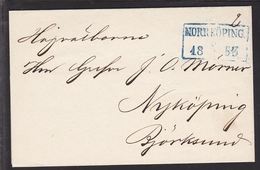 2
NORRKÖPING
18 53
Högvälborne
Herr Grefve J. O. Mörner
Nyköping
Björksund